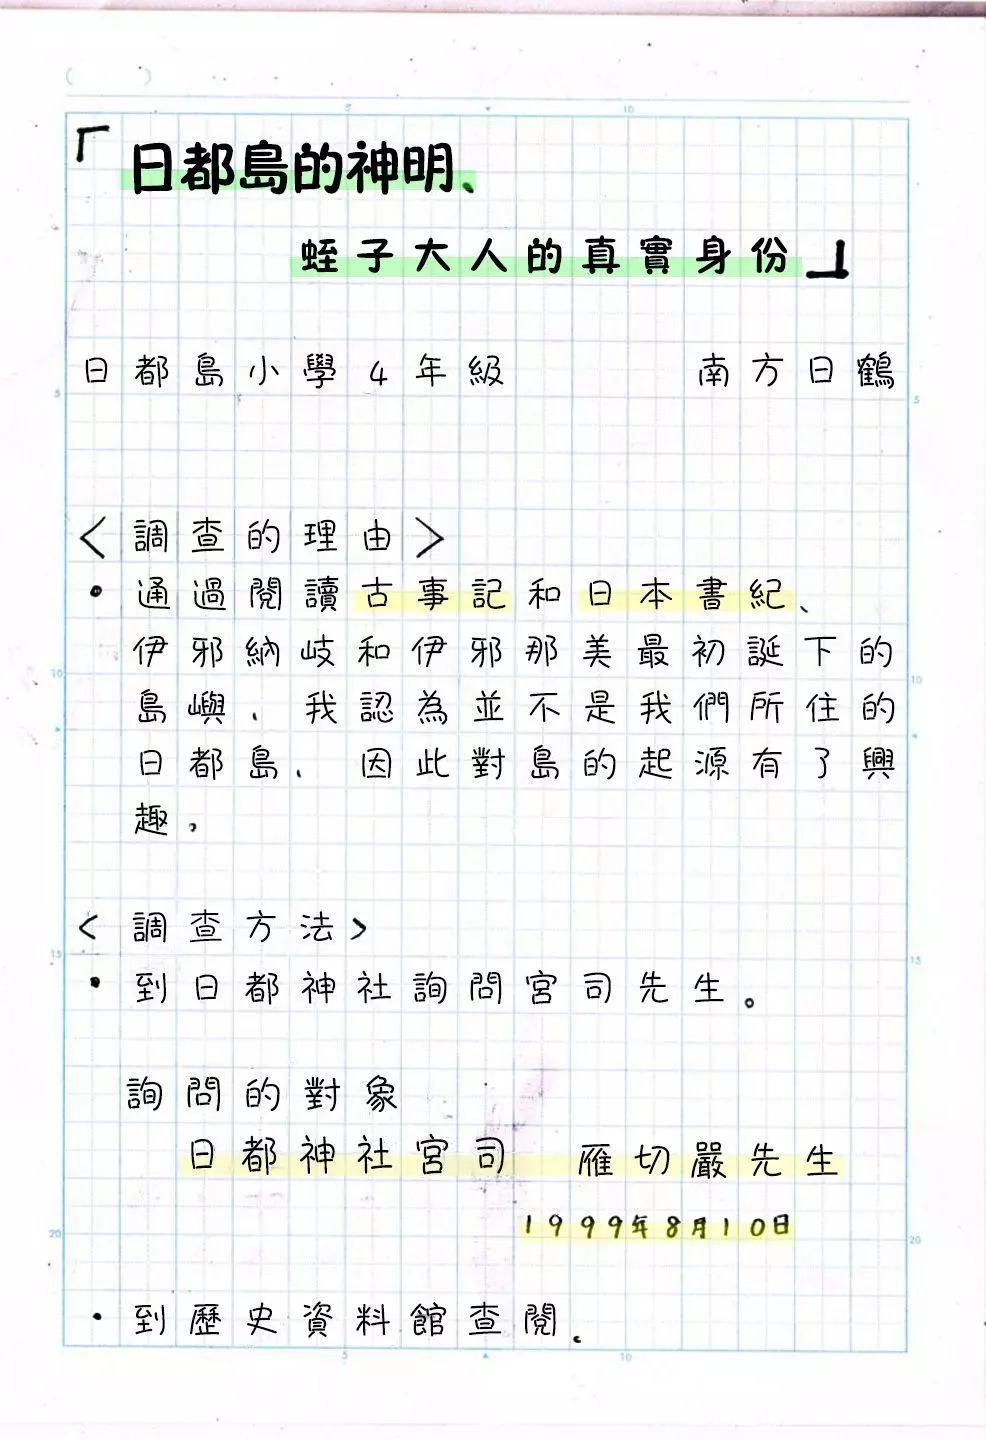 「日都島的神明、
蛭子大人的真實身份」
日都島小學4年級 南方日鶴
<調查的理由>
・通過閱讀古事記和日本書紀、
伊邪納岐和伊邪那美最初誕下的
島嶼、我認為並不是我們所住的
日都島、因此對島的起源有了興
趣。
<調查方法>
・到日都神社詢問宮司先生。
詢問的對象
日都神社宮司 雁切嚴先生
1999年8月10日
・到歷史資料館查閱.
5 10
5 5
10 10
15 15
20 20
5 10